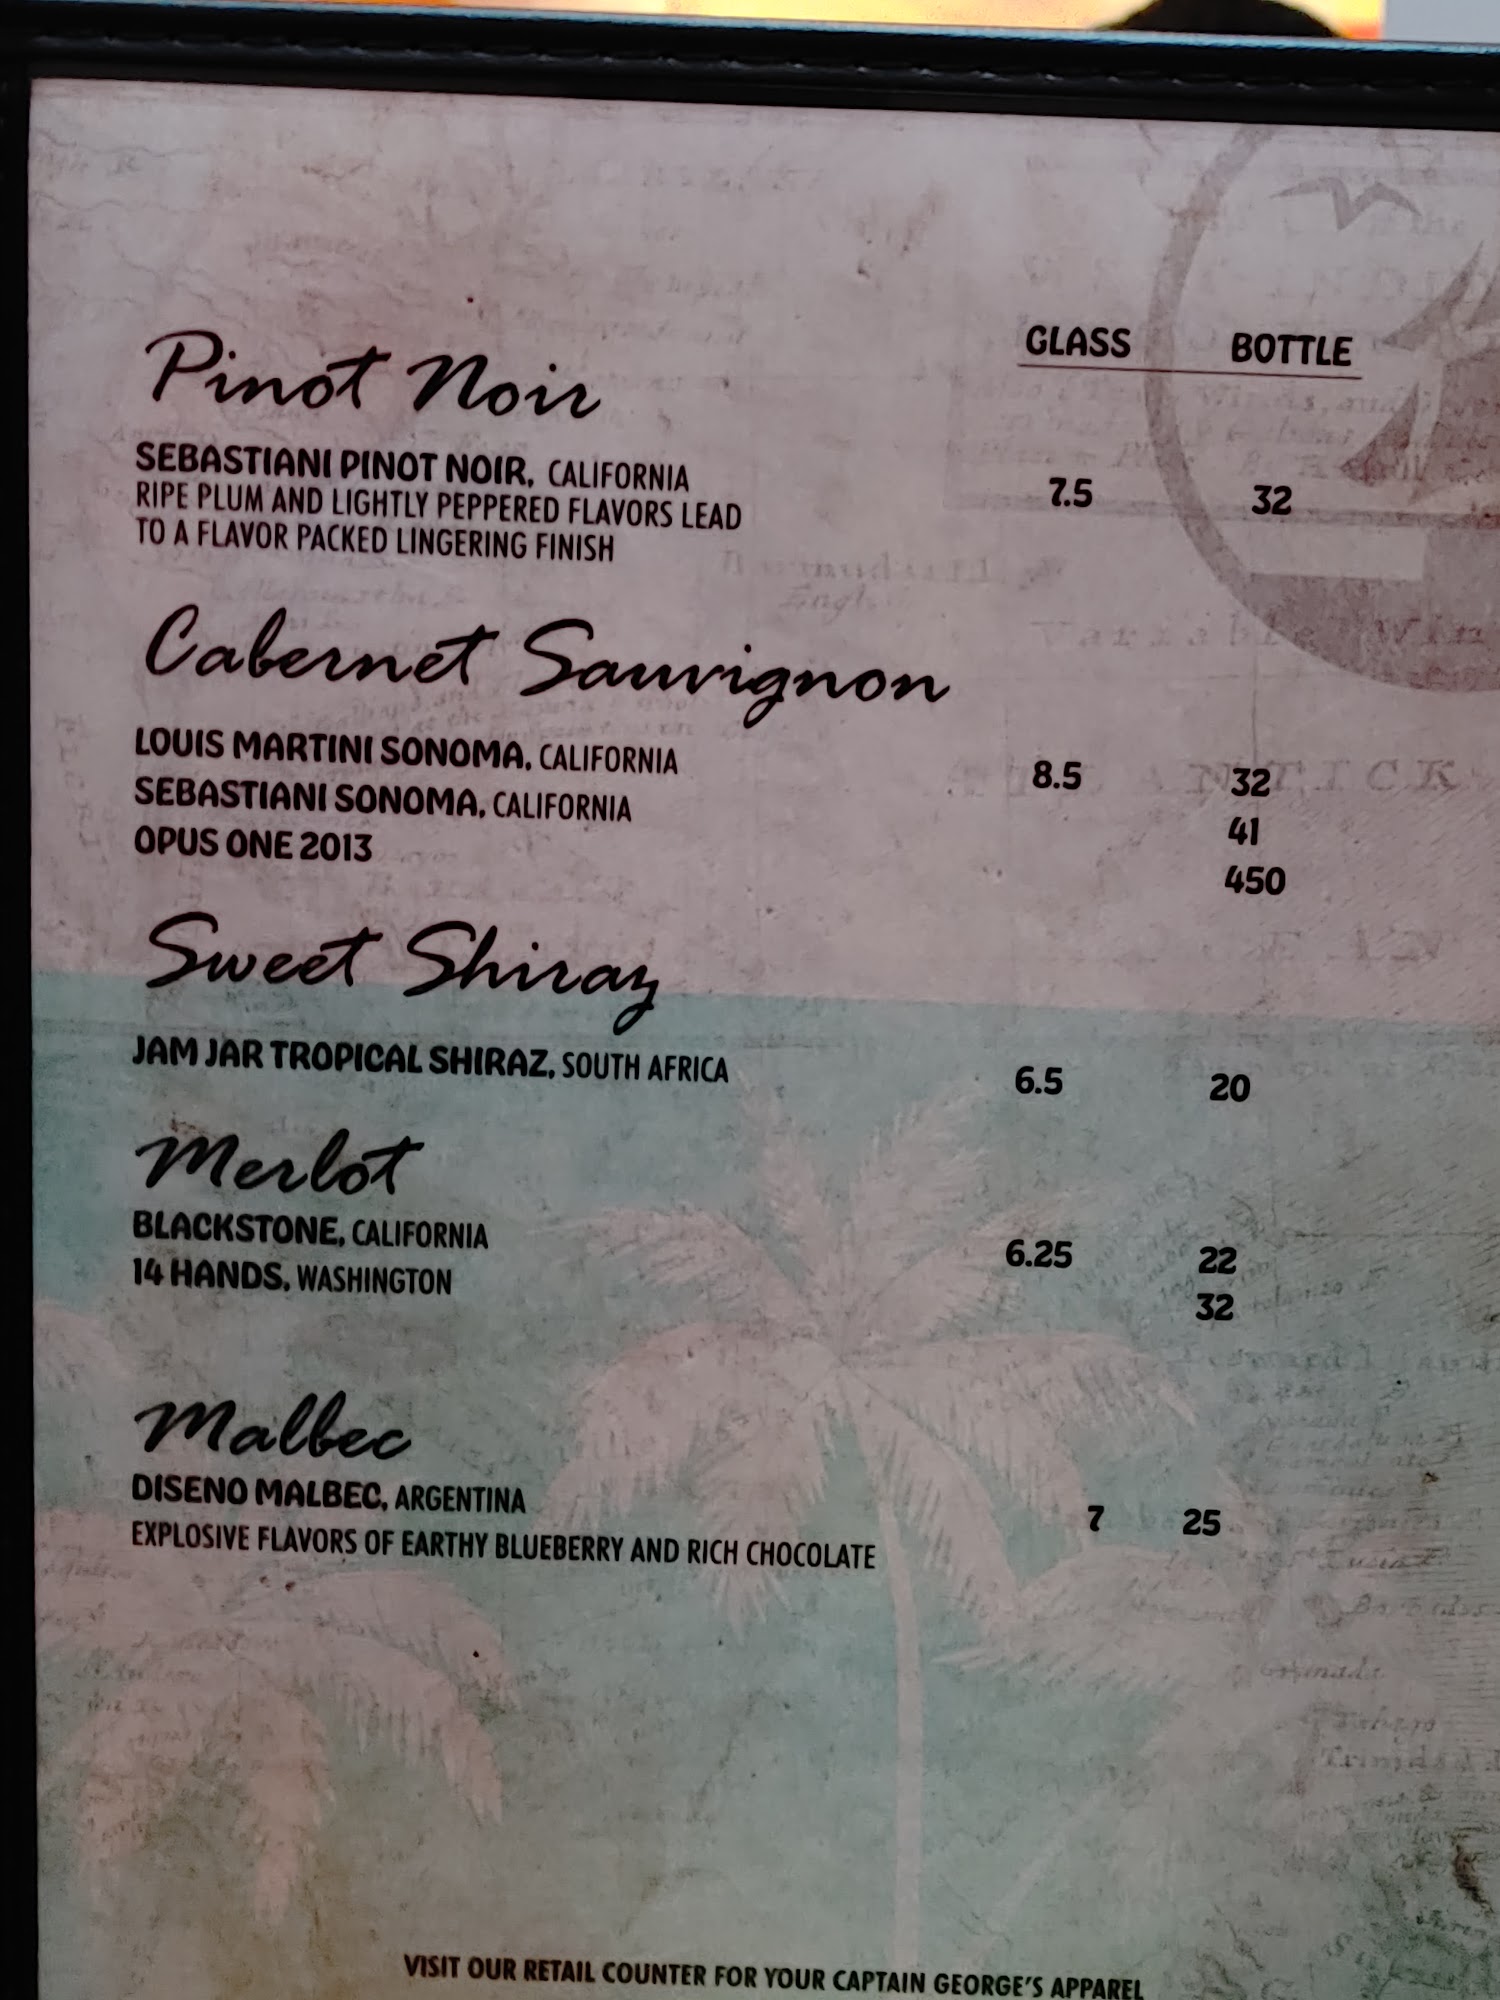 GLASS BOTTLE
Pinot Noir
SEBASTIANI PINOT NOIR, CALIFORNIA
RIPE PLUM AND LIGHTLY PEPPERED FLAVORS LEAD 7.5 32
TO A FLAVOR PACKED LINGERING FINISH
Cabernet Sauvignon
LOUIS MARTINI SONOMA, CALIFORNIA 8.5 32
SEBASTIANI SONOMA, CALIFORNIA 41
OPUS ONE 2013 450
Sweet Shiraz
JAM JAR TROPICAL SHIRAZ, SOUTH AFRICA 6.5 20
Merlot
BLACKSTONE, CALIFORNIA 6.25 22
14 HANDS, WASHINGTON 32
Malbec
DISENO MALBEC, ARGENTINA 7 25
EXPLOSIVE FLAVORS OF EARTHY BLUEBERRY AND RICH CHOCOLATE
VISIT OUR RETAIL COUNTER FOR YOUR CAPTAIN GEORGE'S APPAREL